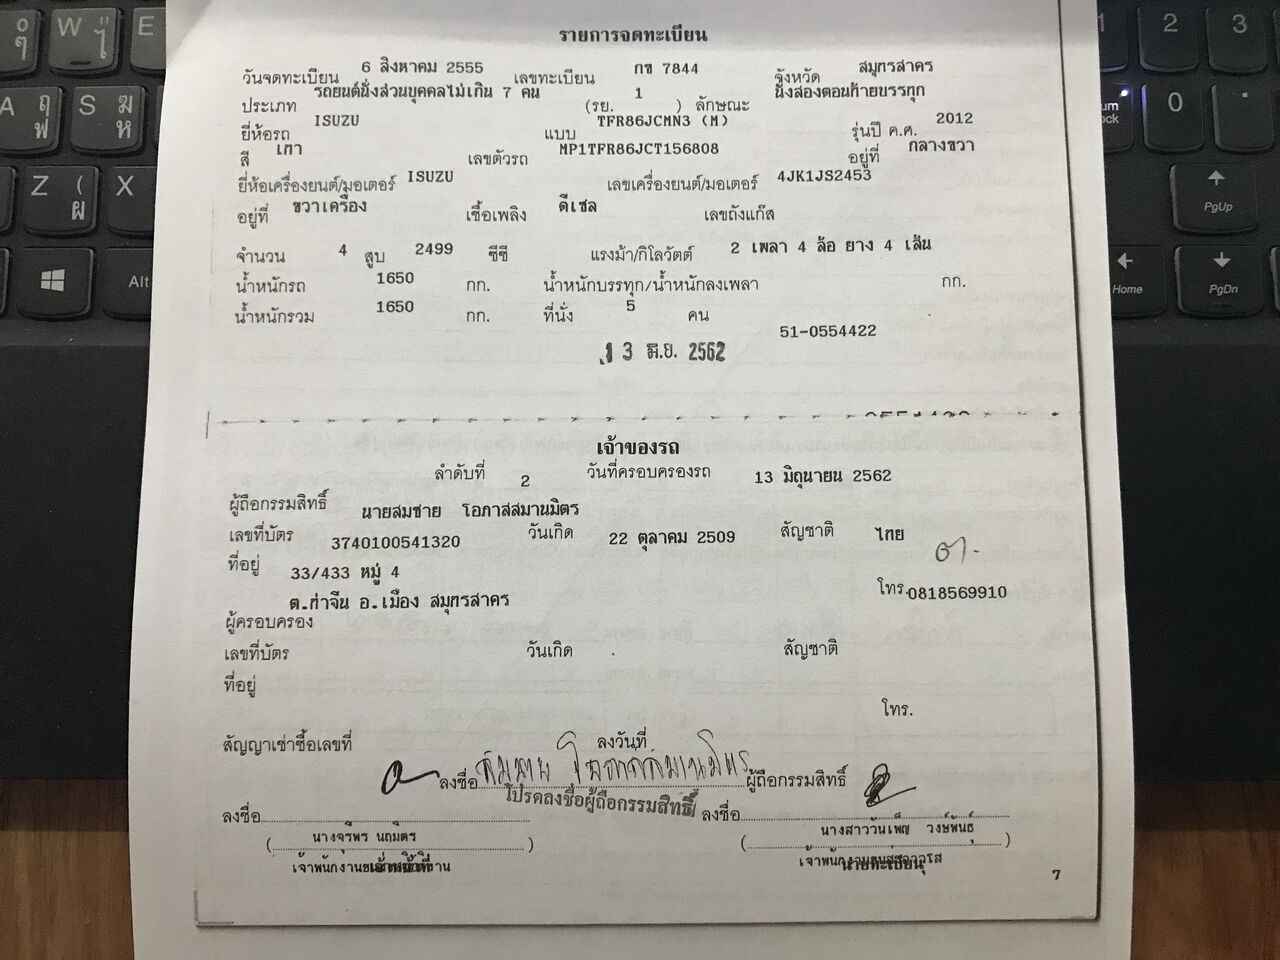 รายการจดทะเบียน
วันจดทะเบียน 6 สิงหาคม 2555 เลขทะเบียน กข 7844 จังหวัด สมุทรสาคร
ประเภท รถยนต์นั่งส่วนบุคคลไม่เกิน 7 คน (รย. 1 ) ลักษณะ นั่งสองตอนท้ายบรรทุก
ยี่ห้อรถ ISUZU แบบ TFR86JCMN3 (M) รุ่นปี ค.ศ. 2012
สี เทา เลขตัวรถ MP1TFR86JCT156808 อยู่ที่ กลางขวา
ยี่ห้อเครื่องยนต์/มอเตอร์ ISUZU เลขเครื่องยนต์/มอเตอร์ 4JK1JS2453
อยู่ที่ ขวาเครื่อง เชื้อเพลิง ดีเซล เลขถังแก๊ส
จำนวน 4 สูบ 2499 ซีซี แรงม้า/กิโลวัตต์ 2 เพลา 4 ล้อ ยาง 4 เส้น
น้ำหนักรถ 1650 กก. น้ำหนักบรรทุก/น้ำหนักลงเพลา กก.
น้ำหนักรวม 1650 กก. ที่นั่ง 5 คน
51-0554422
13 มิ.ย. 2562
เจ้าของรถ
ลำดับที่ 2 วันที่ครอบครองรถ 13 มิถุนายน 2562
ผู้ถือกรรมสิทธิ์ นายสมชาย โอภาสสมานมิตร
เลขที่บัตร 3740100541320 วันเกิด 22 ตุลาคม 2509 สัญชาติ ไทย
ที่อยู่ 33/433 หมู่ 4
ต.ท่าจีน อ.เมือง สมุทรสาคร โทร. 0818569910
ผู้ครอบครอง
เลขที่บัตร วันเกิด สัญชาติ
ที่อยู่
โทร.
สัญญาเช่าซื้อเลขที่ ลงวันที่
ลงชื่อ สมชาย โอภาสสมานมิตร ผู้ถือกรรมสิทธิ์
โปรดลงชื่อผู้ถือกรรมสิทธิ์
ลงชื่อ ลงชื่อ
(นางจุรีพร นฤมิตร) (นางสาววันเพ็ญ วงษ์พันธุ์)
นายทะเบียน
7
W
E
A
S
Z
X
Alt
1
2
3
0
PgUp
Home
PgDn